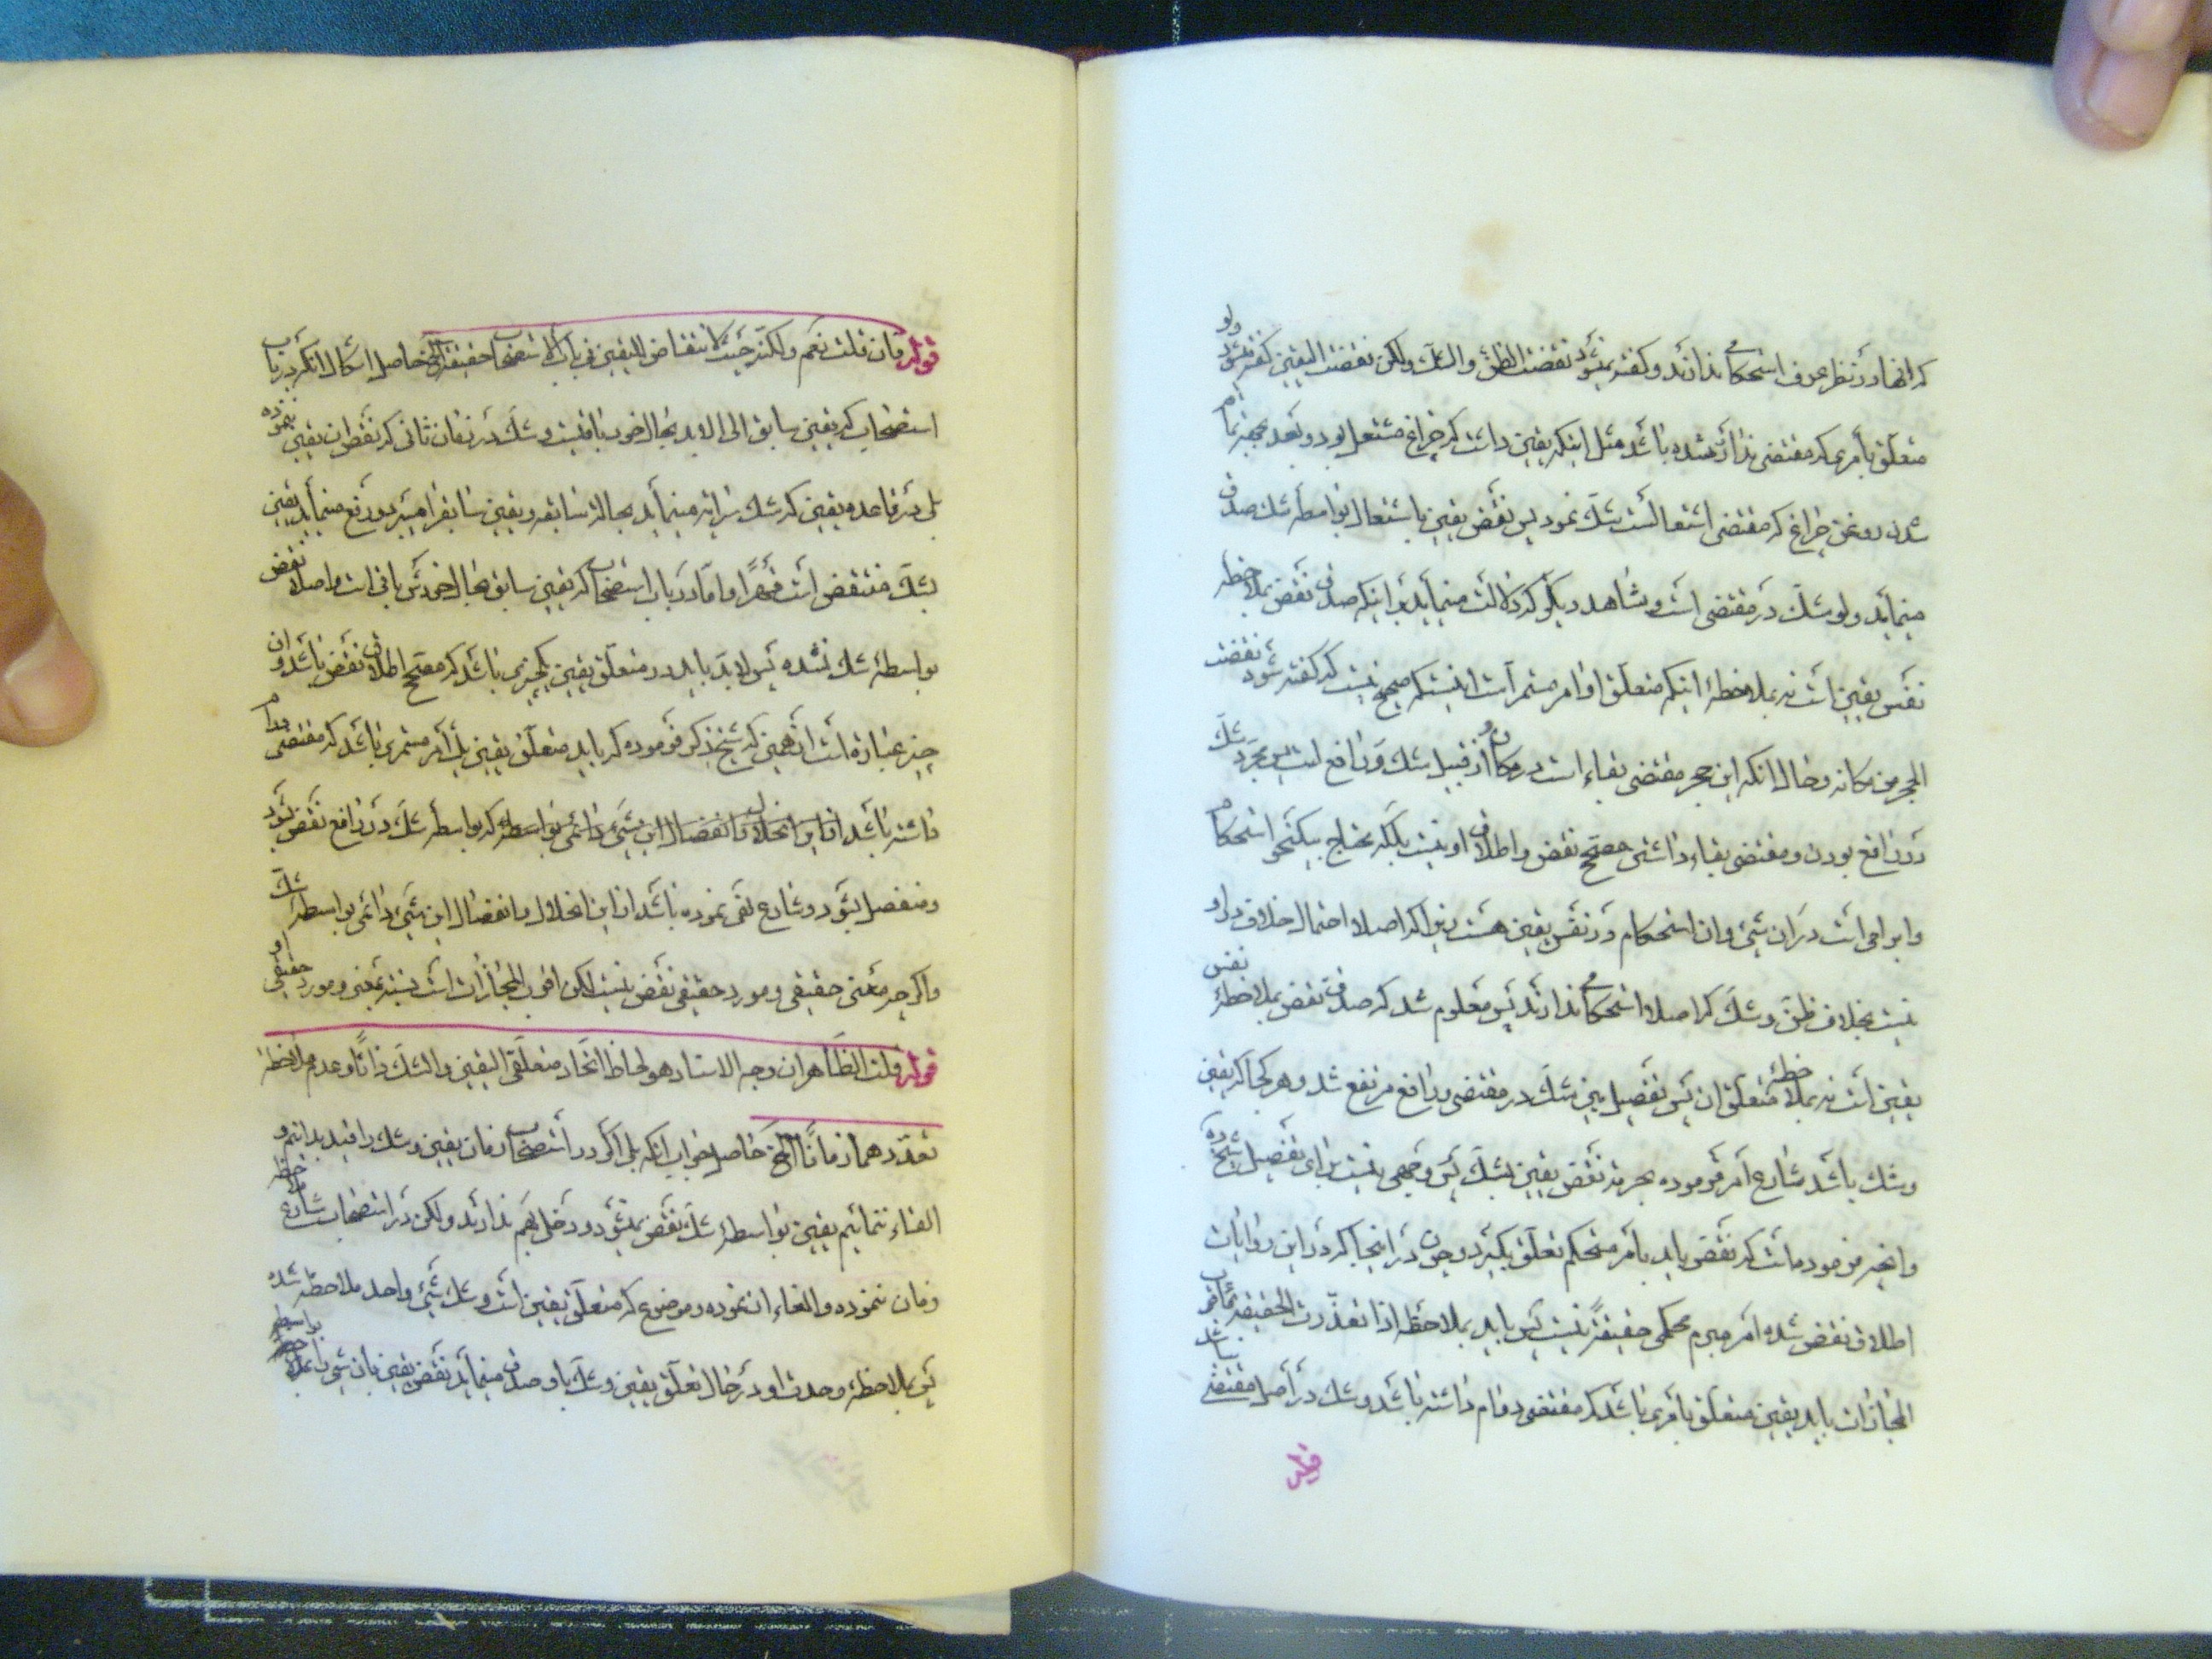 که انها در نظر عرف استحکامی ندارند و گفته نمیشود نقضت الظن والشک ولکن نقضت الیقین گفته میشود ولو
متعلق بأمری که مقتضی ندارد شده باشد مثل اینکه یقین داشت که چراغ مشتعل بود و بعد بجهة تمام
شدن روغن چراغ که مقتضی اشتعالست شک نمود پس نقض یقین باشتعال بواسطه شک صدق
مینماید ولو شک در مقتضی است و شاهد دیگر که دلالت مینماید بر اینکه صدق نقض بملاحظه
نفس یقین است نه بملاحظهٔ اینکه متعلق او امر مستمر است اینستکه صحیح نیست که گفته شود نقضت
الحجر من مکانه و حال انکه این حجر مقتضی بقاء است در مکان و از قبیل شک در رافع است پس مجرد شک
در رافع بودن و مقتضی بقاء داشتن مصحح نقض و اطلاق او نیست بلکه محتاج بیکنحو استحکام
و ابرامی است در ان شیئ و ان استحکام در نفس یقین هست زیرا که اصلا احتمال خلاف در او
نیست بخلاف ظن و شک که اصلا استحکامی ندارند پس معلوم شد که صدق نقض بملاحظهٔ نفس
یقین است نه بملاحظهٔ متعلق ان پس تفصیل بین شک در مقتضی و رافع مرتفع شد و هر کجا که یقین
و شک باشد شارع امر فرموده بحرمة نقض یقین بشک پس وجهی نیست برای تفصیل شیخ ره
و انچه فرموده است که نقض باید بأمر مستحکم تعلق بگیرد و چون در اینجا که در این روایات
اطلاق نقض شده امر مبرم محکمی حقیقةً نیست پس باید بملاحظه اذا تعذرت الحقیقة فأقرب
المجازات باید یقین متعلق بأمری باشد که مقتضی دوام داشته باشد و شک در أصل مقتضی نباشد
قوله
قوله فان قلت نعم ولکنه حیث لا انتقاض للیقین فی باب الاستصحاب حقیقة الخ حاصل اشکال انکه در باب
استصحاب که یقین سابق الی الابد بحال خود باقیست و شک در زمان ثانی که نقض ان یقین ننموده
بلی در قاعده یقین که شک سرایه مینماید بحالت سابقه و یقین سابق را میبرد و رفع مینماید یقین
بشک منتقض است قهرًا و اما در باب استصحاب که یقین سابق بحال خودش باقی است و اصلا نقض
بواسطهٔ شک نشده پس لابد باید در متعلق یقین یکچیزی باشد که مصحح اطلاق نقض باشد و ان
چیز عبارة است از همین که شیخ ذکر فرموده که باید متعلق یقین یک أمر مستمری باشد که مقتضی دوام
داشته باشد تا این انحلال و انفصال این شیئ دائمی بواسطه که بواسطه شک در رافع نقض بشود
و منفصل بشود و شارع نفی نموده باشد از این انحلال و انفصال این شیئ دائمی بواسطهٔ شک
و اگر چه معنی حقیقی و مورد حقیقی نقض نیست لکن اقرب المجازات است نسبة بمعنی و مورد حقیقی او
قوله قلت الظاهر ان وجه الاسناد هو لحاظ اتحاد متعلقی الیقین والشک ذاتًا و عدم ملاحظة
تعددهما زمانًا الخ حاصل جواب انکه بلی اگر در استصحاب زمان یقین و شک را قید بدانیم و
الغاء ننمائیم یقین بواسطهٔ شک نقض نمیشود و دخلی بهم ندارند ولکن در استصحاب شارع ملاحظه
زمان ننموده و الغاء ان نموده و موضوع که متعلق یقین است و شک شیئ واحد ملاحظه شده
پس بملاحظهٔ وحدت او در حال تعلق یقین و شک باو صدق مینماید نقض یقین بان شیئ بواسطه